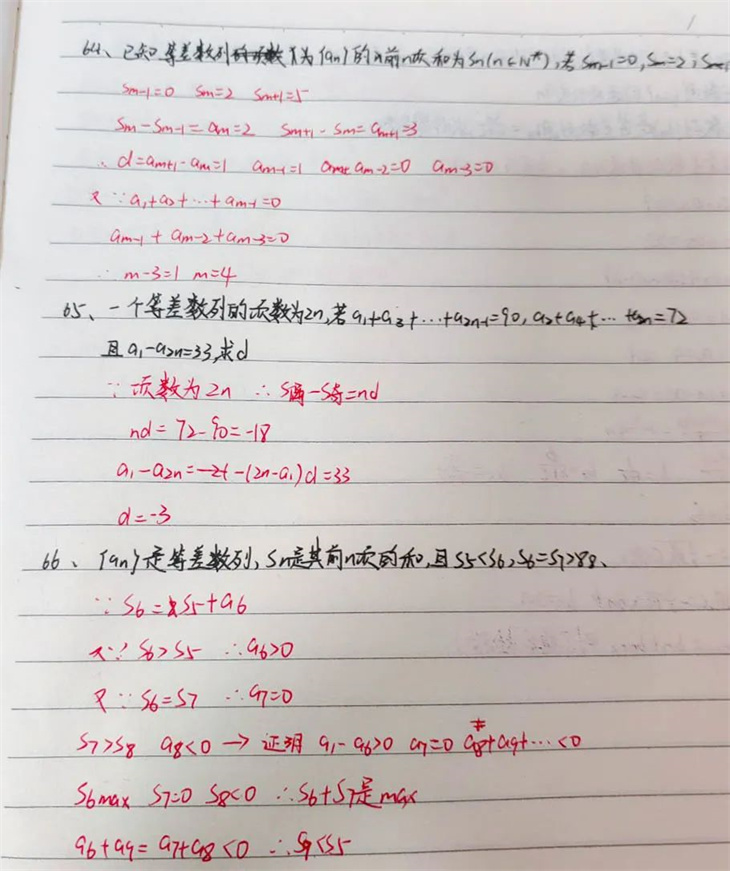 64、已知等差数列{an}的前n项和为Sn(n∈N*),若Sm-1=0,Sm=2,Sm+1
Sm-1=0 Sm=2 Sm+1=5
Sm-Sm-1=am=2 Sm+1-Sm=am+1=3
∴d=am+1-am=1 am-1=1 am-2=0 am-3=0
又∵a1+a2+…+am-1=0
am-1+am-2+am-3=0
∴m-3=1 m=4
65、一个等差数列的项数为2n,若a1+a3+…+a2n-1=90,a2+a4+…+a2n=72
且a1-a2n=33,求d
∵项数为2n ∴S偶-S奇=nd
nd=72-90=-18
a1-a2n=-(2n-a1)d=33
d=-3
66、{an}是等差数列,Sn是其前n项的和,且S5<S6,S6=S7>S8、
∵S6=S5+a6
又∵S6>S5 ∴a6>0
又∵S6=S7 ∴a7=0
S7>S8 a8<0→证明 a1-a6>0 a7=0 a8+a9+…<0
S6max S7=0 S8<0 ∴S6+S7是max
a6+a9=a7+a8<0 ∴S9<S5